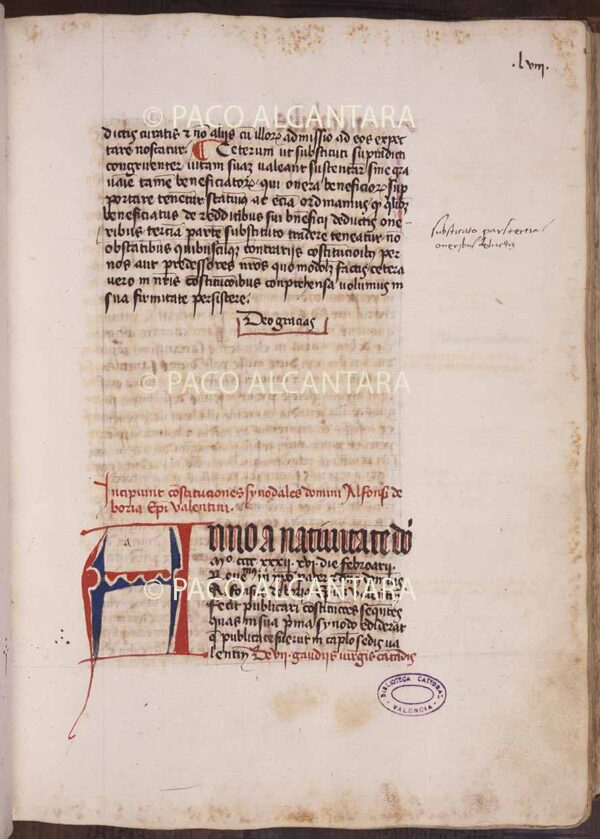 .lviij.
© PACO ALCANTARA
dictis curatis & nō aliis cū illoꝝ admissio ad eos expec
tare noscatur. Ceterum ut substituti supradicti
congruenter vitam suaꝫ valeant sustentar sine gra
vaīe tamē beneficiatoꝝ qui onera beneficioꝝ sup
portare tenent statuīꝰ ac eciā ordinamus ꝙ qlibꝫ
beneficiatus de redditibus sui bnēficij deductis one
ribus tercia parte substituto tradere teneatur nō
obstātibus quibuscūqꝫ contrariis costitucōibꝫ per
nos aut predessores nr̄os quomodolꝫ factis cetera
vero in nr̄is costitucoībus conprehensa volumus in
sua firmitate persistere.
Deo gracias
substituto pars tercia
oneribus deductis
© PACO ALCANTARA
Incipiunt costituciones synodales domini Alfonsi de
boria Epi Valentini.
a
Anno a natiuitate dō
Mº. cccc xxxij. xvj. die februarii.
© PACO ALCANTARA
fecit publicari costitucōes sequētes
in sua p̄ma synodo
ꝙ publicate fuerūt in caplo sedis va
lentin De vij. gaudiis virgīs
BIBLIOTECA CATEDRAL
VALENCIA